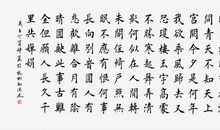 問青天不知天上
宮闕今夕是何年
我欲乘風歸去又
恐瓊樓玉宇高處
不勝寒起舞弄清
影何似在人間轉
朱閣低綺戶照無
眠不應有恨何事
長向別時圓人有
悲歡離合月有陰
晴圓缺此事古難
全但願人長久千
里共嬋娟